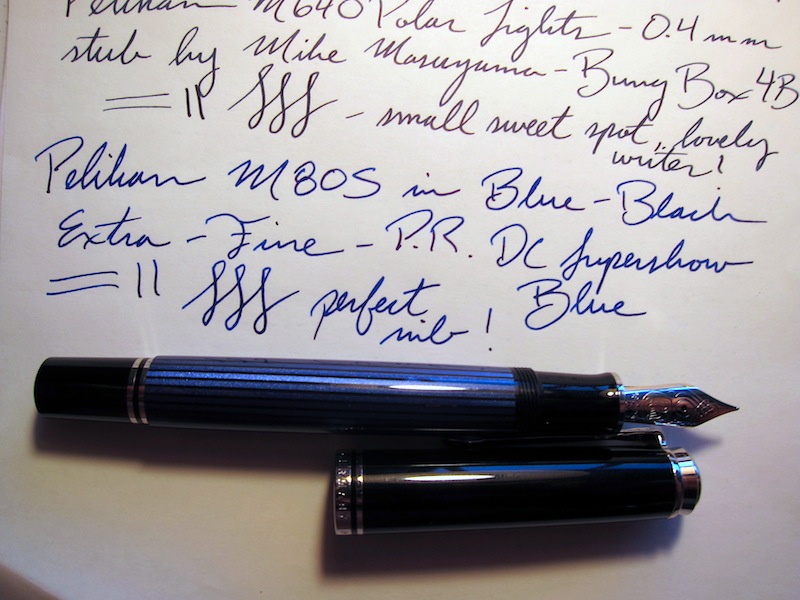 Pelikan M640 Polar Lights - 0.4 mm
stub by Mike Masuyama - Bung Box 4B
= || - small sweet spot, lovely
writer!
Pelikan M805 in Blue-Black
Extra-Fine - P.R. DC Supershow
Blue
= || perfect
nib!